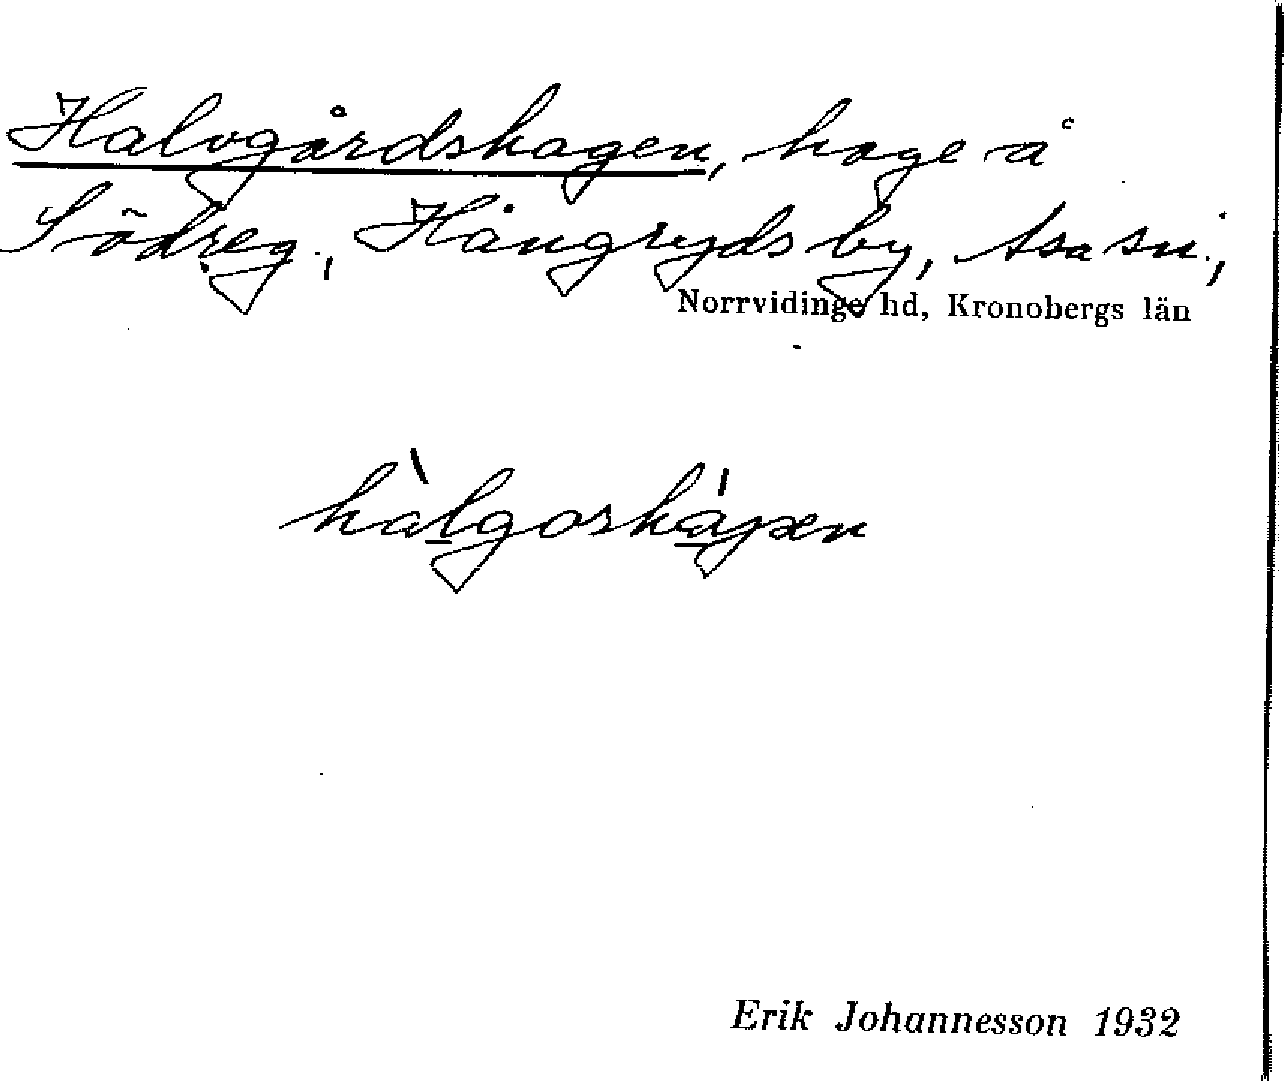 Halvgårdshagen, hage å
Södreg., Hångryds by, Asa sn.,
Norrvidinge hd, Kronobergs län
hàlgoshápen
Erik Johannesson 1932